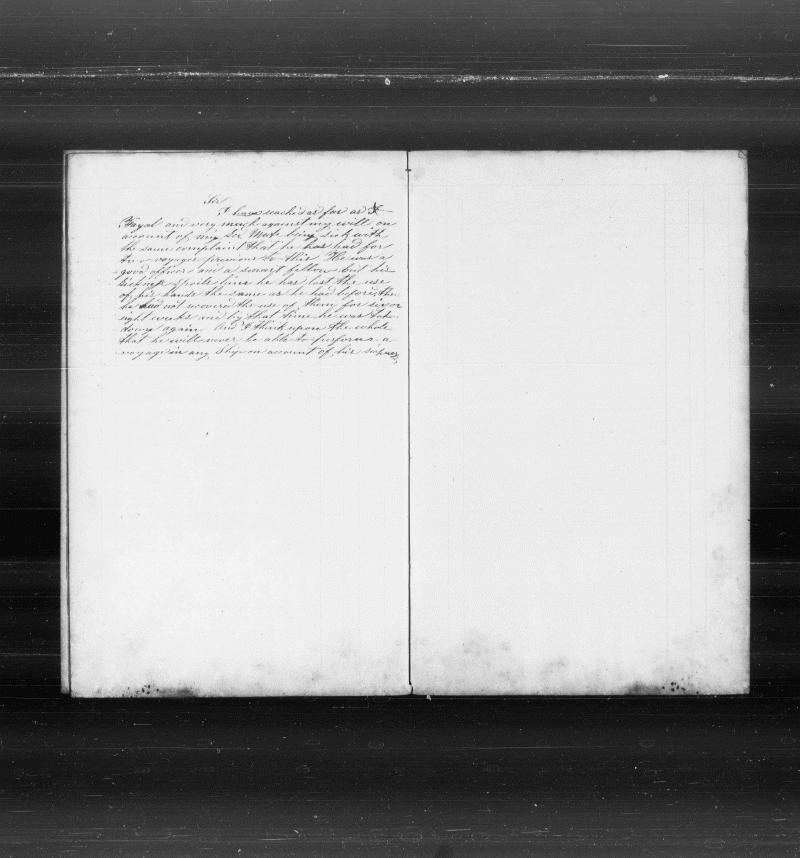 Sir
I have reached as far as
Fayal and very much against my will on
account of my Sec Mate being sick with
the same complaint that he has had for
two voyages previous to this. He was a
good officer and a smart fellow but his
sickness spoils him he has lost the use
of his hands the same as he had before, then
he did not recover the use of them for six or
eight weeks and by that time he was took
down again. And I think upon the whole
that he will never be able to perform a
voyage in any Ship on account of his sickness